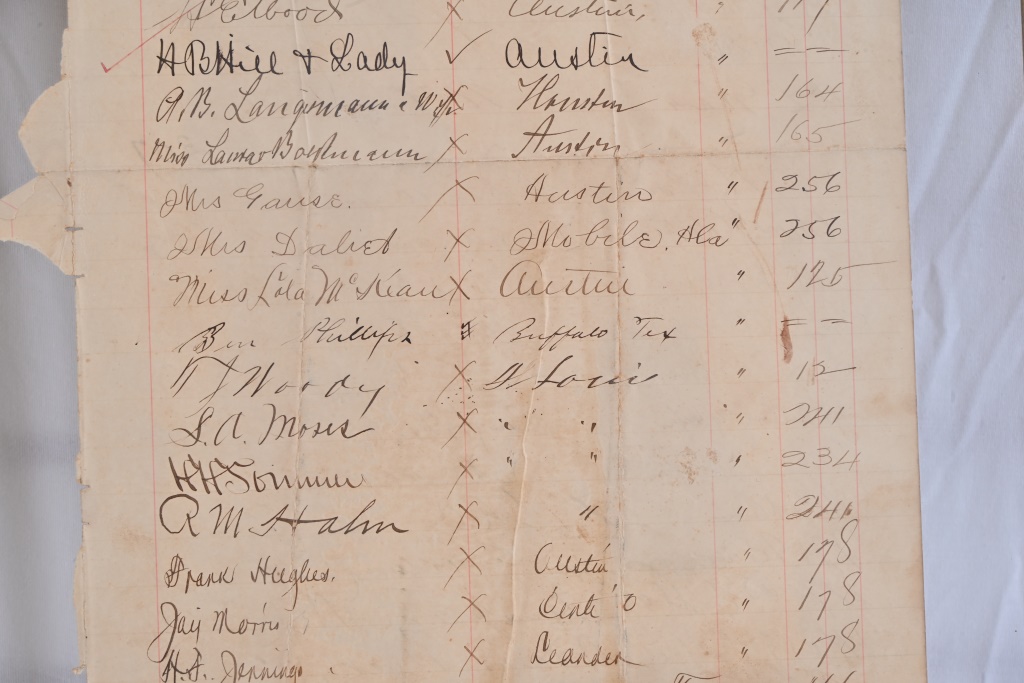 Austin, "
H B Hill & Lady ✓ Austin " = =
A. B. Langermann & Wife X Houston " 164
Miss Laura Boltmann X Austin " 165
Mrs Gause. X Austin " 256
Mrs X Mobile, Ala " 256
Miss Lola McKean X Austin " 125
Ben Phillips Buffalo Tex " = =
Woody X St Louis " 12
S. A. Moses X " " " 241
H H Sommer X " " " 234
R M S Hahn X " " 241
Frank Hughes. X Austin " 178
Jay Morris X " 178
H. F. Jennings X Leander " 178